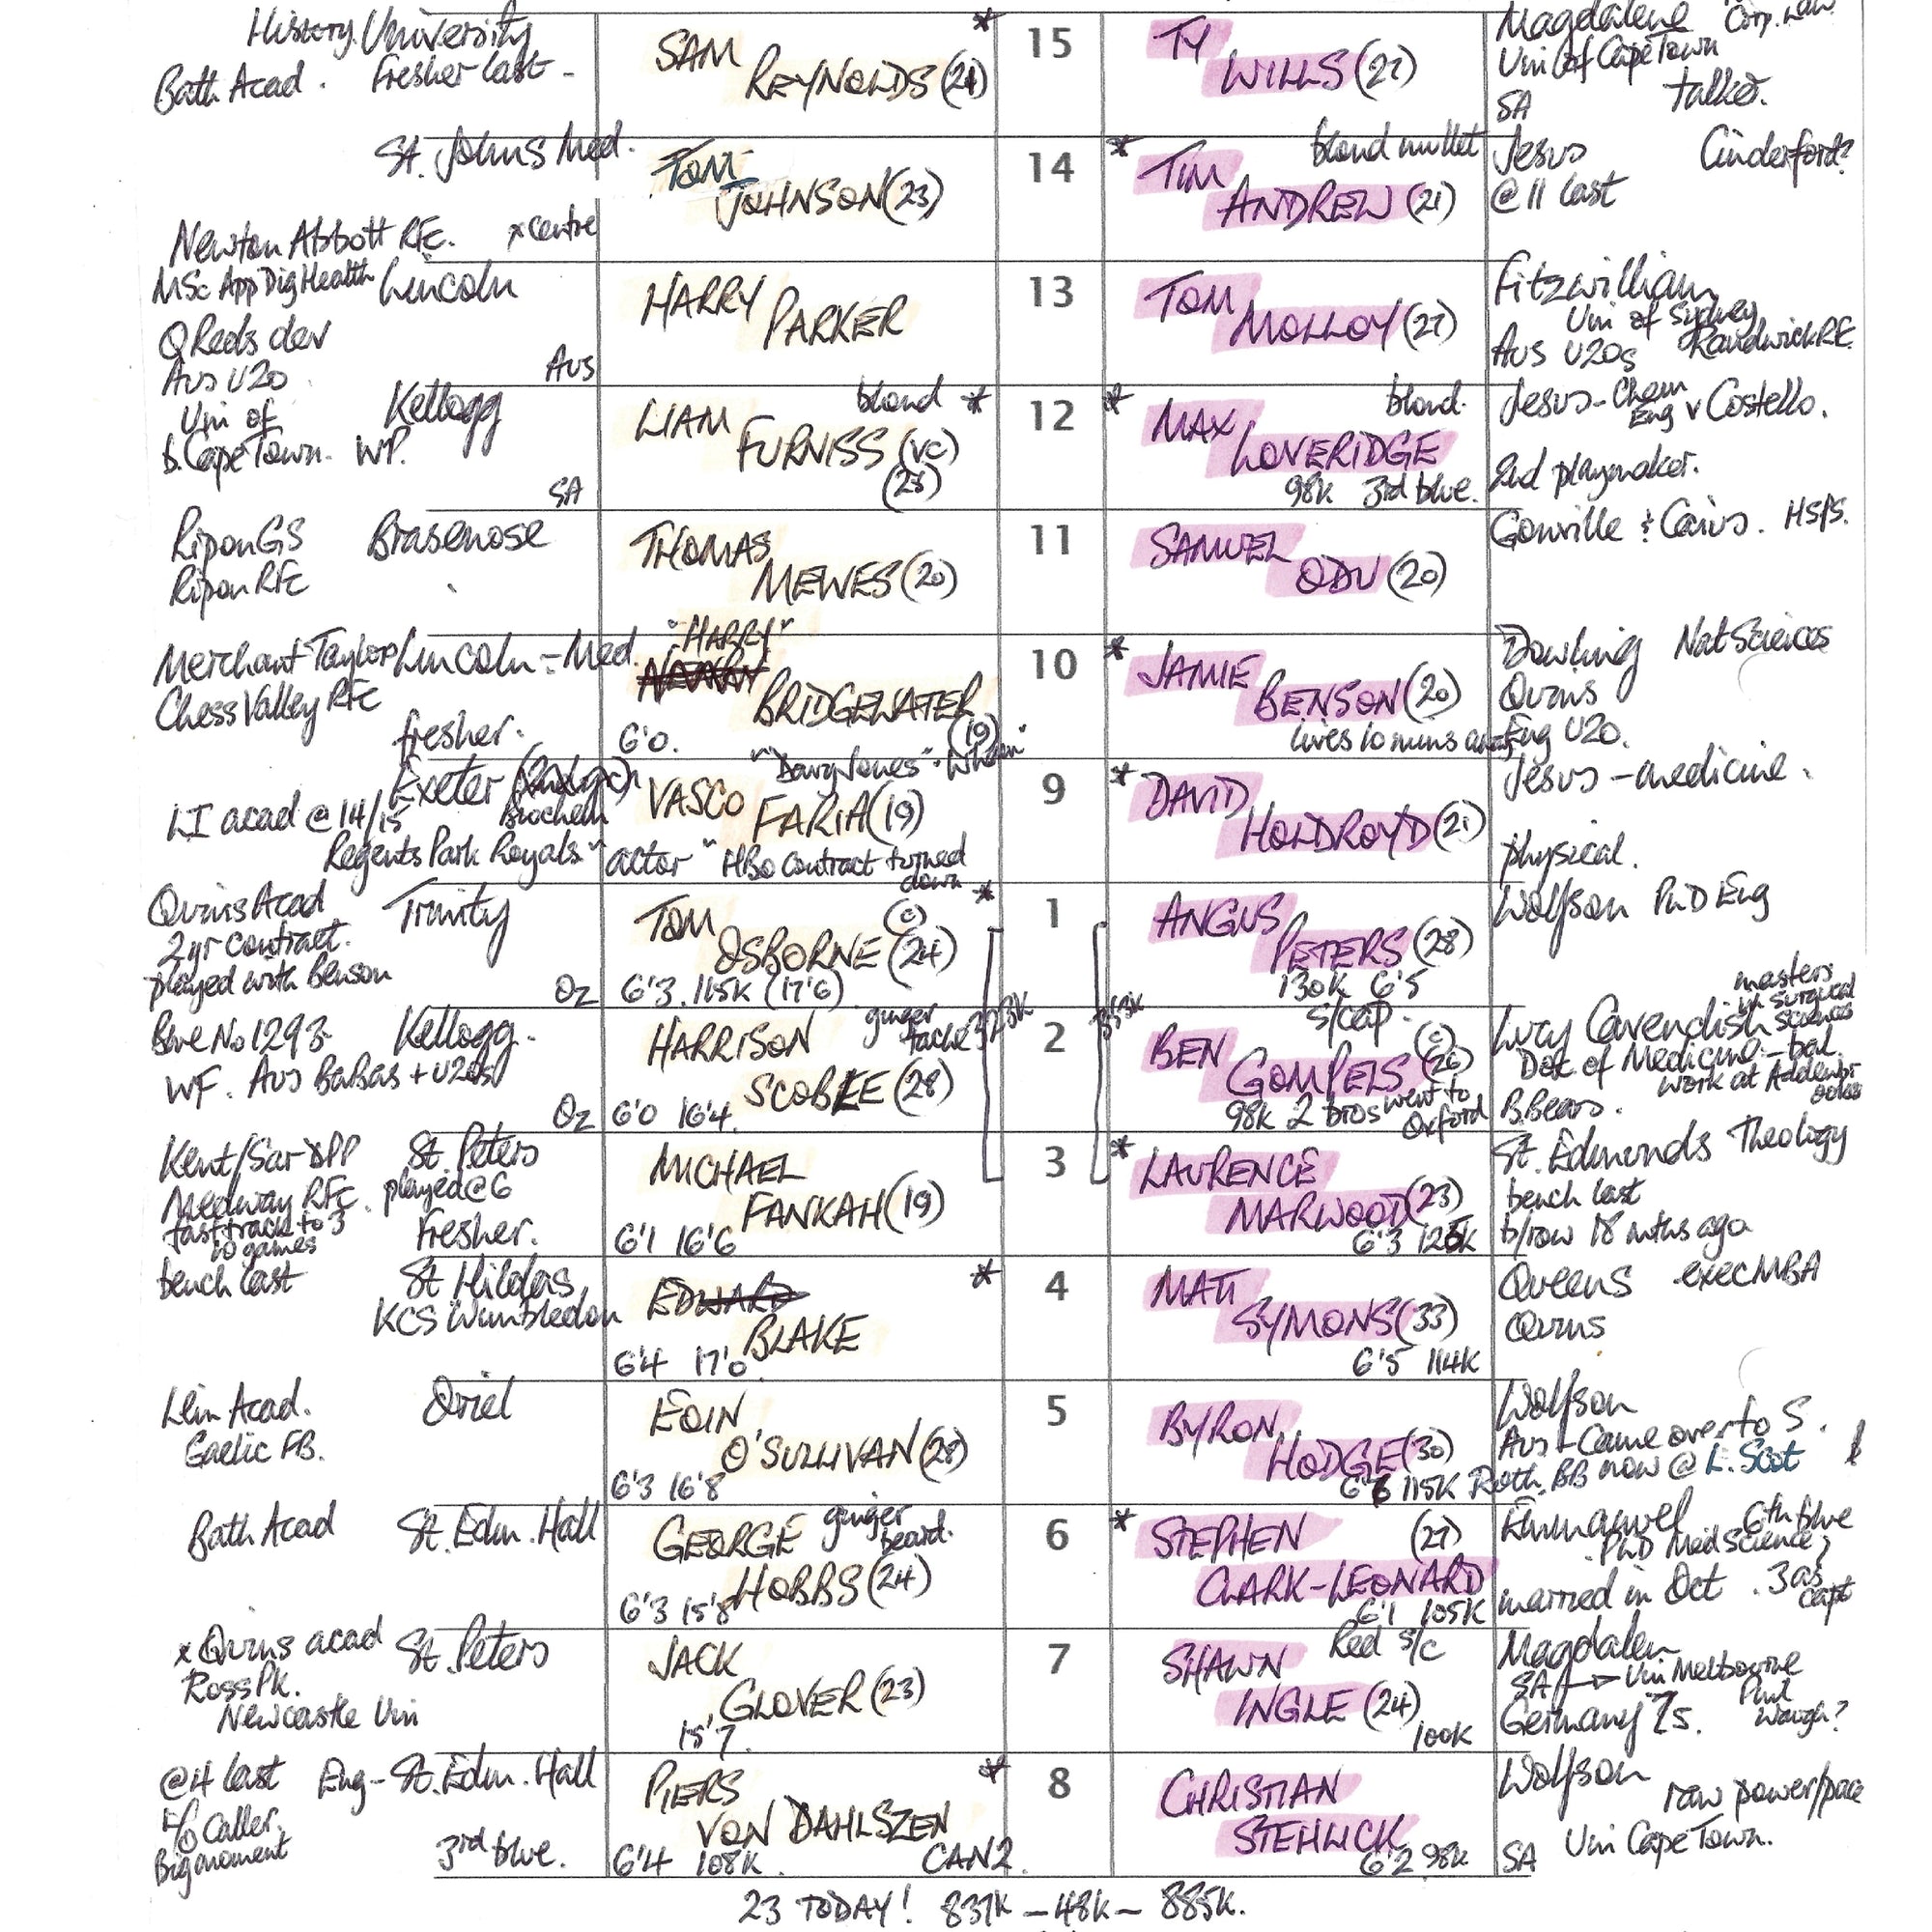 History. University
Bath Acad. Fresher last -
SAM
REYNOLDS (21)
*
15
TY
WILLS (27)
Magdalene Corp. Law
Uni of Cape Town
SA talker.
St. Johns Med.
Newton Abbott RFC. x centre
TOM
JOHNSON (23)
14
* blond mullet
TIM
ANDREW (21)
Jesus Cinderford?
@ 11 last
MSc App Dig Health Lincoln
Q Reds dev
Aus U20 Aus
HARRY
PARKER
13
TOM
MOLLOY (27)
Fitzwilliam
Uni of Sydney
Aus U20s Randwick RFC
Uni of Kellogg
b. Cape Town. WP.
SA
blond *
LIAM
FURNISS (VC)
12
* blond.
MAX
LOVERIDGE
98K 3rd blue.
Jesus - Chem
Eng v Costello.
2nd playmaker.
Ripon GS Brasenose
Ripon RFC
THOMAS
MEWES (20)
11
SAMUEL
ODU (20)
Gonville & Caius. HSPS.
Merchant Taylors Lincoln - Med.
Chess Valley RFC
fresher.
"HARRY"
BRIDGEWATER
(19)
6'0.
10
*
JAMIE
BENSON (20)
lives 10 mins away
Dowling Nat Sciences
Quins
Eng U20.
Exeter
LI acad @ 14/15 Biochem
Regents Park Royals
"Davy Jones"
VASCO
FARIA (19)
"actor" HBO contract turned
down
9
*
DAVID
HOLDROYD (21)
Jesus - medicine.
physical.
Quins Acad Trinity
2yr contract.
played with Benson
Oz
*
TOM (C)
OSBORNE (24)
6'3. 115K (17'6)
1
ANGUS
PETERS (28)
130K 6'5
Wolfson PhD Eng
Blue No 1293. Kellogg.
WF. Aus BaBas + U20s
Oz
ginger
tache
HARRISON
SCOBLE (28)
6'0 16'4
2
s/cap.
BEN (C)
GOMPELS (26)
98K 2 bros went to
Oxford
masters
in surgical
sciences
Lucy Cavendish
Doc of Medicine
work at Addenbrookes
B. Bears.
Kent/Sar DPP St. Peters
Medway RFC. played @ 6
fast track to 3
10 games
Fresher.
MICHAEL
FANKAH (19)
6'1 16'6
3
*
LAURENCE
MARWOOD (23)
6'3 125K
St. Edmunds Theology
bench last
b/row 18 mths ago
bench last St Hildas
KCS Wimbledon
*
EDWARD
BLAKE
6'4 17'0
4
MATT
SYMONS (33)
6'5 114K
Queens exec MBA
Quins
Lein Acad. Oriel
Gaelic FB.
EOIN
O'SULLIVAN (28)
6'3 16'8
5
BYRON
HODGE (30)
115K
Wolfson
Aus - Came over to S.
Roth. BB now @ L. Scot
Bath Acad St. Edm. Hall
GEORGE ginger
beard.
HOBBS (24)
6'3 15'8
6
*
STEPHEN (27)
CLARK-LEONARD
6'1 105K
Emmanuel 6th blue
PhD Med Science
married in Oct. 3 as
capt
x Quins acad St. Peters
Ross Pk.
Newcastle Uni
JACK
GLOVER (23)
15'7.
7
Red s/c
SHAWN
INGLE (24)
100K
Magdalen
SA → Uni Melbourne
Germany 7s. Phil
Waugh?
@ 4 last Eng - St. Edm. Hall
L/O caller.
Big moment 3rd blue.
*
PIERS
VON DAHLSZEN
6'4 108K. CAN2
8
CHRISTIAN
STEHLICK
6'2 98K
Wolfson raw power/pace
SA Uni Cape Town.
23 TODAY! 837K - 48K - 885K.